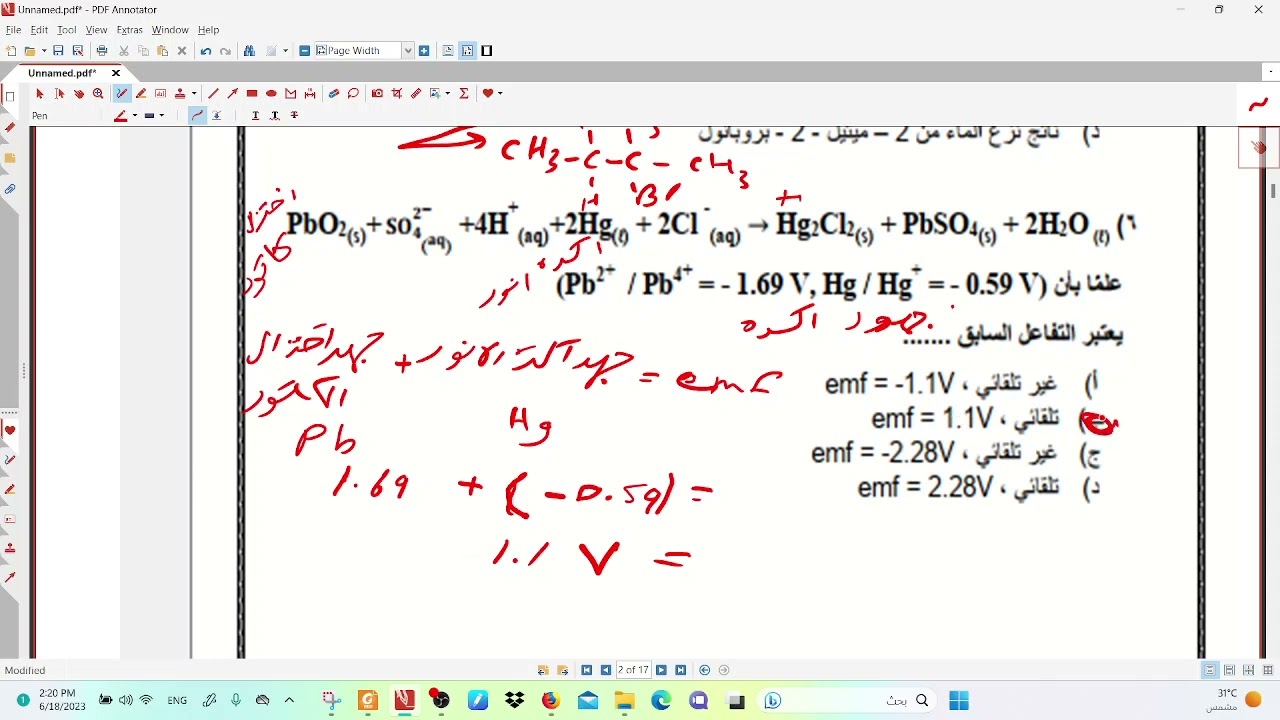 Unnamed.pdf* - PDF Annotator
File Edit Tool View Extras Window Help
Page Width
Unnamed.pdf*
Pen
د) ناتج نزع الماء من 2 – ميثيل - 2 - بروبانول
CH3-C-C-CH3
H Br
+
اختزال
كاثود
٦) PbO2(s)+so4^2-(aq) +4H^+(aq)+2Hg(ℓ) + 2Cl^-(aq) → Hg2Cl2(s) + PbSO4(s) + 2H2O (ℓ)
اكسدة
انود
علمًا بأن (Pb^2+ / Pb^4+ = - 1.69 V, Hg / Hg^+ = - 0.59 V)
جهود اكسدة
يعتبر التفاعل السابق .......
emf = جهد اكسدة الانود + جهد اختزال الكاثود
أ) غير تلقائي ، emf = -1.1V
تلقائي ، emf = 1.1V
ج) غير تلقائي ، emf = -2.28V
د) تلقائي ، emf = 2.28V
Pb Hg
1.69 + (-0.59) =
1.1 V =
Modified
2 of 17
2:20 PM
6/18/2023
ENG
بحث
31°C
مشمس